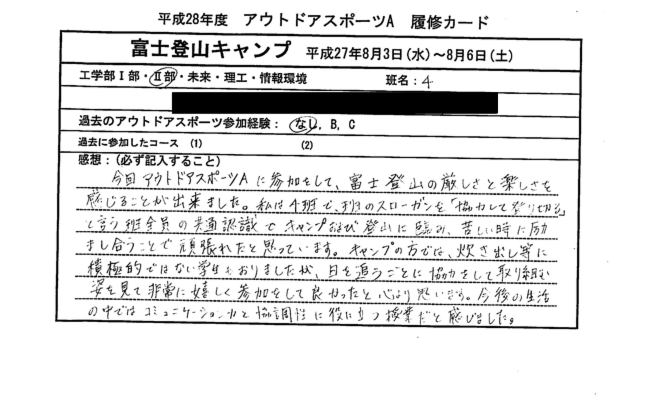 平成28年度　アウトドアスポーツA　履修カード
富士登山キャンプ　平成27年8月3日(水)～8月6日(土)
工学部Ⅰ部・Ⅱ部・未来・理工・情報環境　班名：4
過去のアウトドアスポーツ参加経験：なし, B, C
過去に参加したコース　(1)　(2)
感想：(必ず記入すること)
今回アウトドアスポーツAに参加をして、富士登山の厳しさと楽しさを
感じることが出来ました。私は4班で、班のスローガンを「協力して登り切る」
と言う班全員の共通認識でキャンプおよび登山に臨み、苦しい時に励
まし合うことで頑張れたと思っています。キャンプの方では、炊き出し等に
積極的ではない学生もおりましたが、日を追うごとに協力をして取り組む
姿を見て非常に嬉しく参加をして良かったと心より思います。今後の生活
の中ではコミュニケーション力と協調性に役に立つ授業だと感じました。